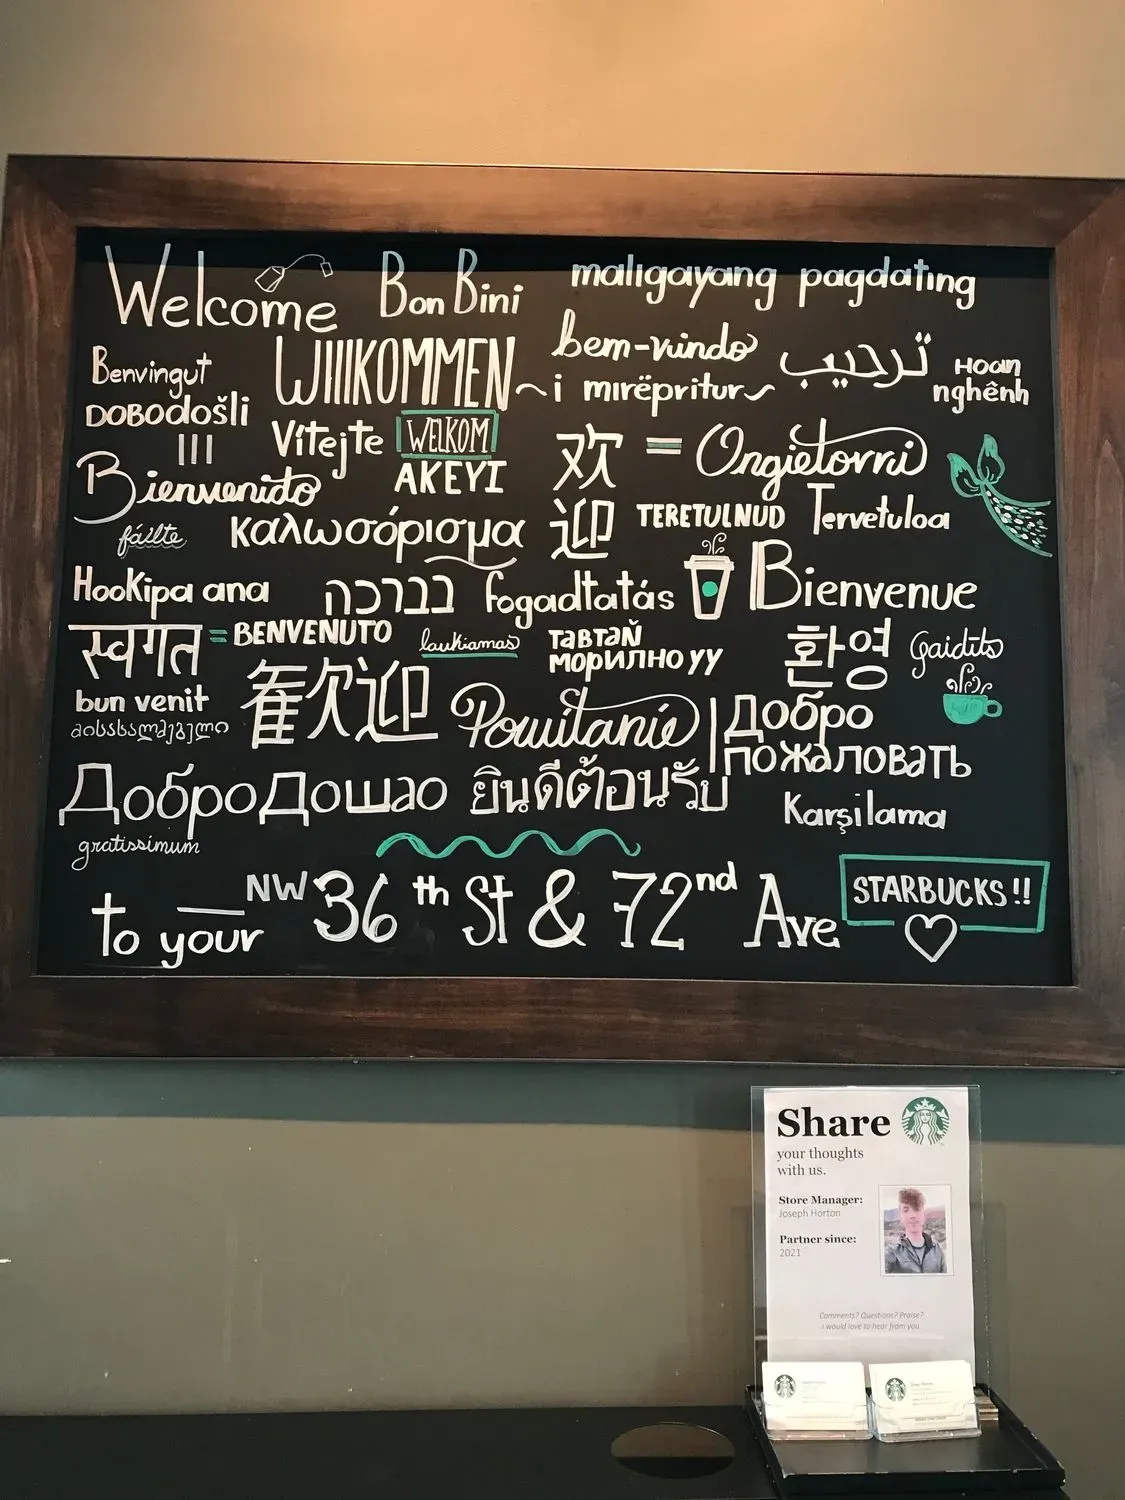 Welcome
Bon Bini
maligayang pagdating
Benvingut
WIIIKOMMEN
bem-vindo
ترحيب
HOAN
nghênh
DOBODOŠLI
i mirëpritur
Vítejte
WELKOM
AKEYI
欢
迎
=
Ongietorri
Bienvenido
fáilte
καλωσόρισμα
TERETULNUD
Tervetuloa
HooKipa ana
בברכה
fogadtatás
Bienvenue
स्वगत
=
BENVENUTO
laukiamas
тавтай
морилно уу
환영
Gaidīts
bun venit
მისასალმებელი
歡迎
Powitanie
Добро
пожаловать
Добро Дошао
ยินดีต้อนรับ
Karşilama
gratissimum
to your NW 36th St & 72nd Ave
STARBUCKS!!
Share
your thoughts
with us.
Store Manager:
Joseph Horton
Partner since:
2021
Comments? Questions? Praise?
I would love to hear from you.